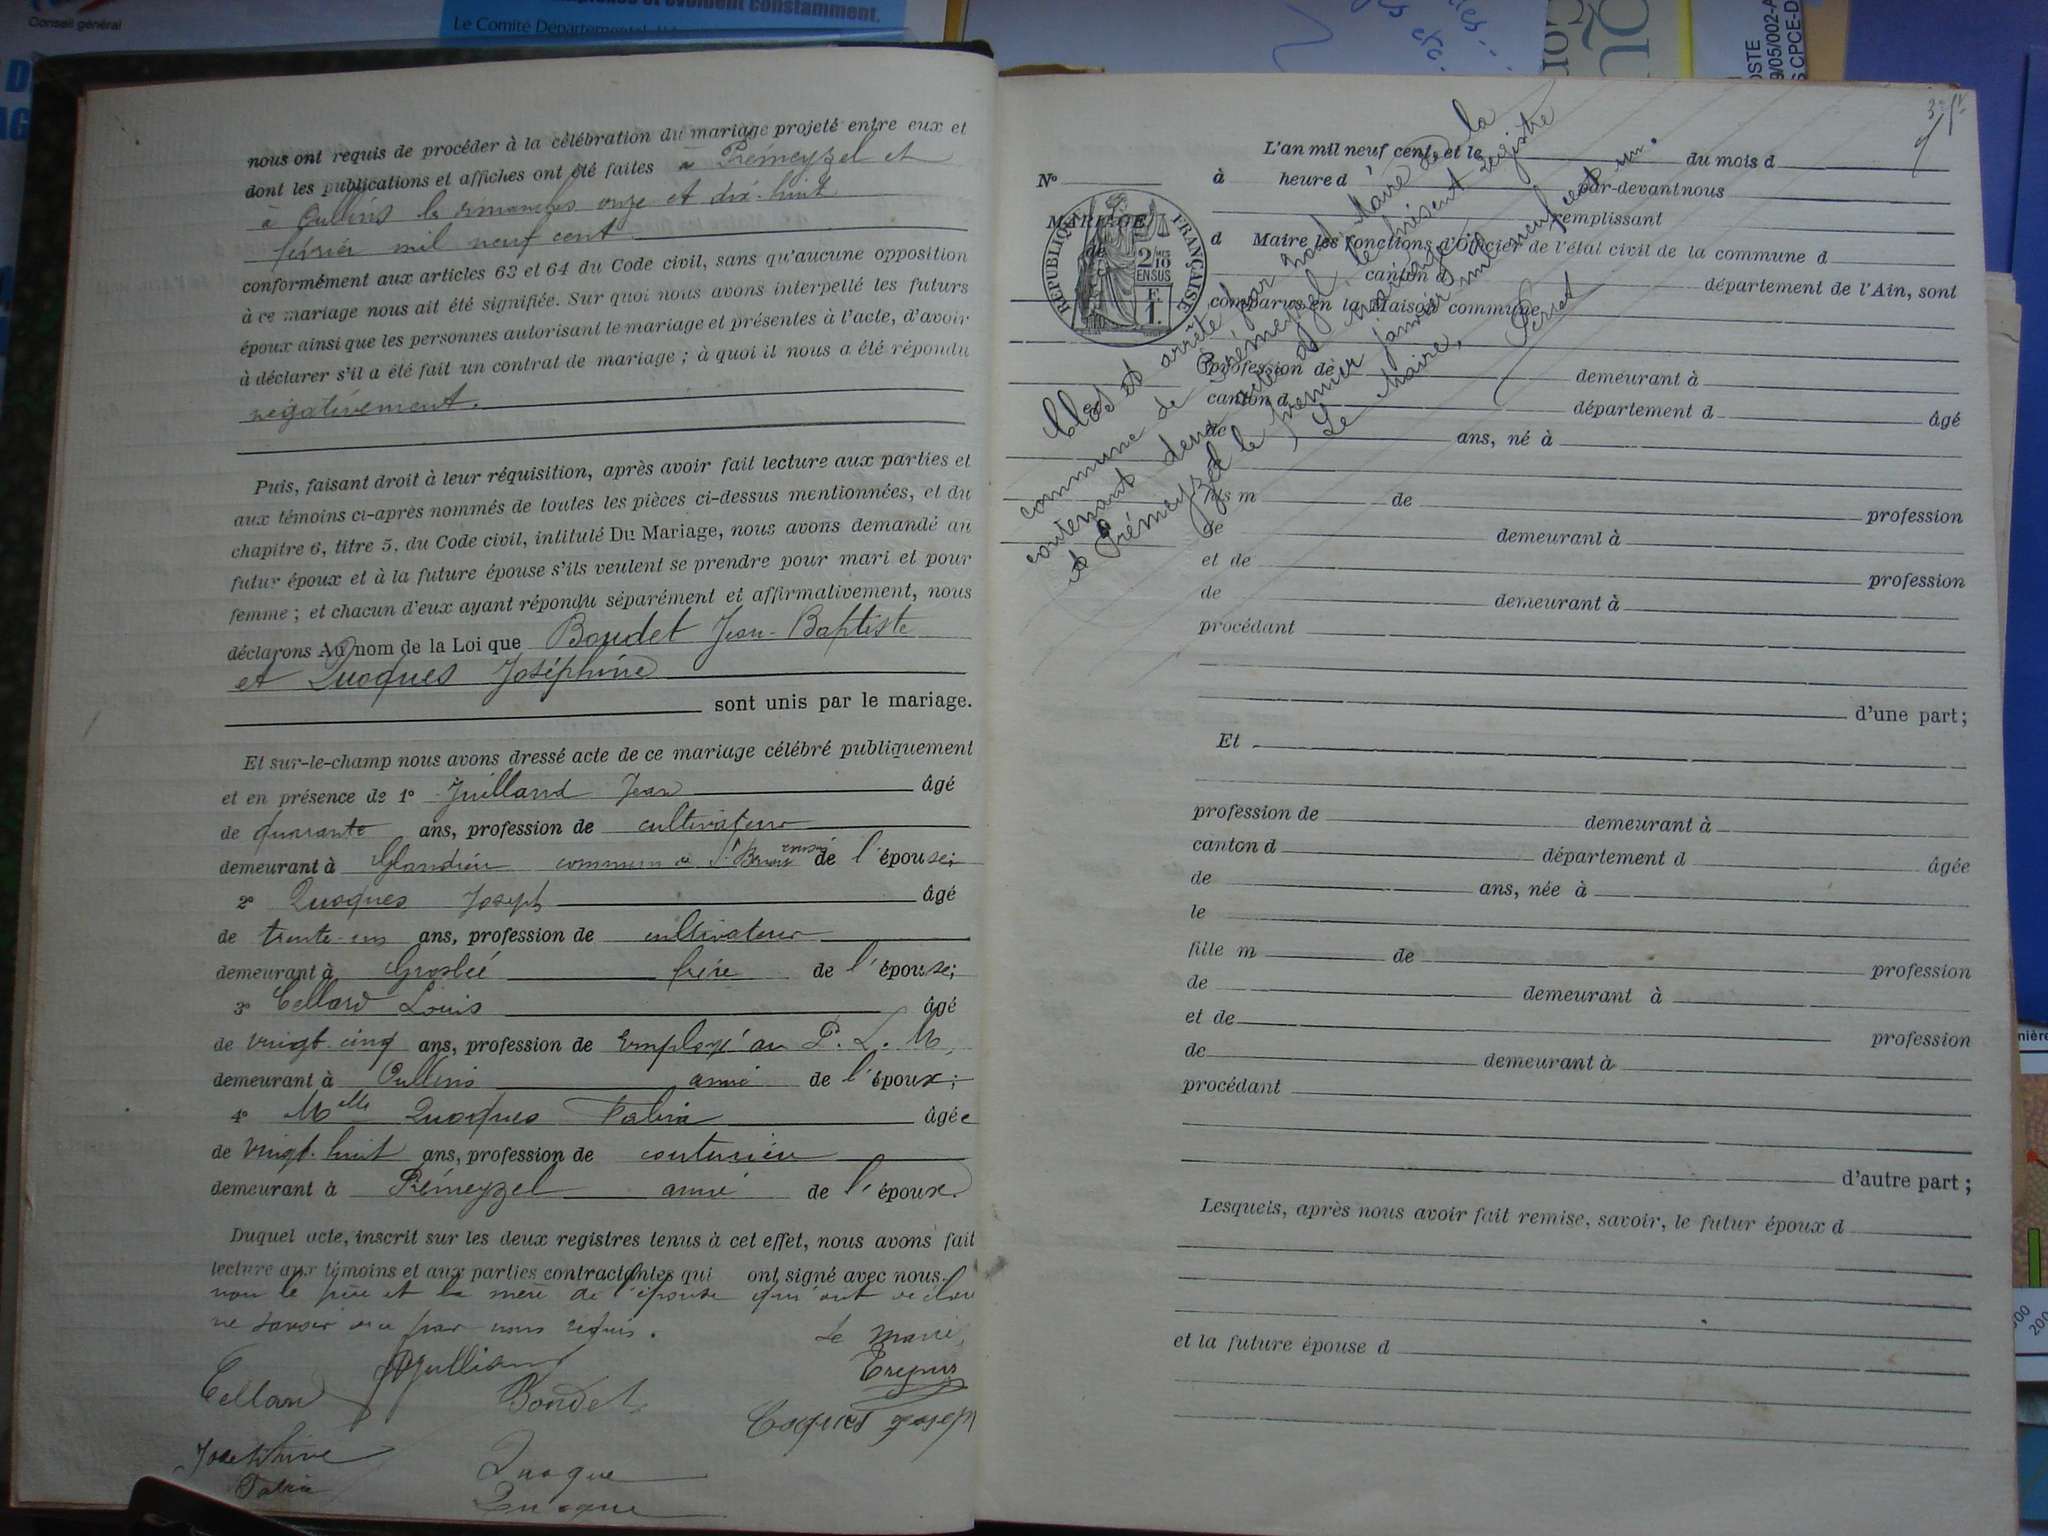 Conseil général
et évoluent constamment.
Le Comité Départemental
nous ont requis de procéder à la célébration du mariage projeté entre eux et
dont les publications et affiches ont été faites à Prémeyzel et
à Oullins le dimanches onze et dix-huit
février mil neuf cent
conformément aux articles 63 et 64 du Code civil, sans qu'aucune opposition
à ce mariage nous ait été signifiée. Sur quoi nous avons interpellé les futurs
époux ainsi que les personnes autorisant le mariage et présentes à l'acte, d'avoir
à déclarer s'il a été fait un contrat de mariage ; à quoi il nous a été répondu
négativement.
Puis, faisant droit à leur réquisition, après avoir fait lecture aux parties et
aux témoins ci-après nommés de toutes les pièces ci-dessus mentionnées, et du
chapitre 6, titre 5, du Code civil, intitulé Du Mariage, nous avons demandé au
futur époux et à la future épouse s'ils veulent se prendre pour mari et pour
femme ; et chacun d'eux ayant répondu séparément et affirmativement, nous
déclarons Au nom de la Loi que Boudet Jean-Baptiste
et Quoques Joséphine
sont unis par le mariage.
Et sur-le-champ nous avons dressé acte de ce mariage célébré publiquement
et en présence de 1° Juilland Jean âgé
de quarante ans, profession de cultivateur
demeurant à Glandieu commune de St Benoit de l'épouse;
2° Quoques Joseph âgé
de trente-un ans, profession de cultivateur
demeurant à Groslée frère de l'épouse;
3° Cellard Louis âgé
de vingt cinq ans, profession de Employé au P. L. M,
demeurant à Oullins ami de l'époux;
4° Melle Quoques Fabia âgée
de vingt-huit ans, profession de couturière
demeurant à Prémeyzel amie de l'époux.
Duquel acte, inscrit sur les deux registres tenus à cet effet, nous avons fait
lecture aux témoins et aux parties contractantes qui ont signé avec nous.
non le père et la mère de l'épouse qui ont déclaré
ne savoir par nous requis.
Le maire,
Cellard
Boudet
Coques Joseph
Josephine Quoque
Fabia Quoque
L'an mil neuf cent et le du mois d
N° à heure d par-devant nous
MARIAGE remplissant
de
d Maire les fonctions d'Officier de l'état civil de la commune d
canton d département de l'Ain, sont
comparus en la Maison commune
RÉPUBLIQUE FRANÇAISE
2/10 EN SUS
F.
1.
Clos et arrêté par nous Maire de la
commune de Prémeyzel, le présent registre
contenant deux actes de mariage
à Prémeyzel le premier janvier mil neuf cent un.
Le Maire,
Perret
profession de demeurant à
canton d département d âgé
de ans, né à
le
fils m de profession
de demeurant à
et de profession
de demeurant à
procédant
d'une part;
Et
profession de demeurant à
canton d département d âgée
de ans, née à
le
fille m de profession
de demeurant à
et de profession
de demeurant à
procédant
d'autre part;
Lesquels, après nous avoir fait remise, savoir, le futur époux d
et la future épouse d